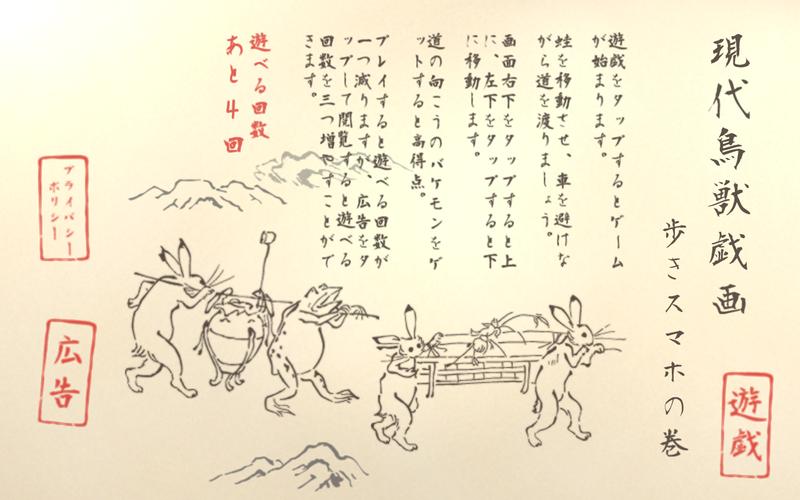 現代鳥獣戯画
歩きスマホの巻
遊戯
遊戯をタップするとゲーム
が始まります。
蛙を移動させ、車を避けな
がら道を渡りましょう。
画面右下をタップすると上
に、左下をタップすると下
に移動します。
道の向こうのバケモンをゲ
ットすると高得点。
プレイすると遊べる回数が
一つ減りますが、広告をタ
ップして閲覧すると遊べる
回数を三つ増やすことがで
きます。
遊べる回数
あと4回
プライバシー
ポリシー
広告